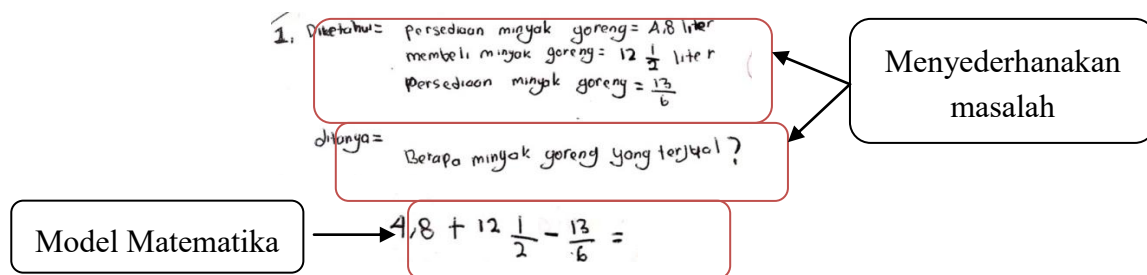 1. Diketahui= persediaan minyak goreng = 4,8 liter
membeli minyak goreng = 12 1/2 liter
Persediaan minyak goreng = 13/6
ditanya=
Berapa minyak goreng yang terjual?
4,8 + 12 1/2 - 13/6 =
Menyederhanakan
masalah
Model Matematika